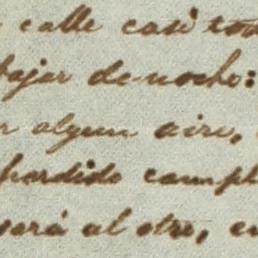 calle casi to
bajar de noche:
algun aire,
perdido compl
será al otro, en